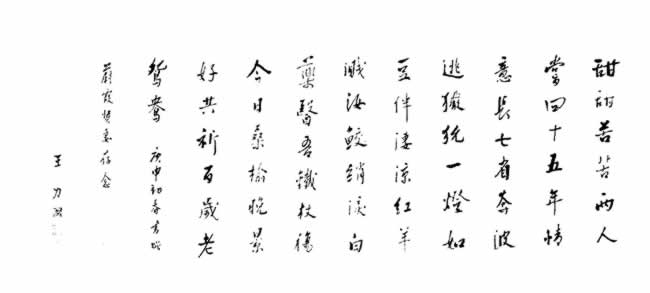 甜甜苦苦兩人
嘗四十五年情
意長七省奔波
逃玁狁一燈如
豆伴淒涼紅羊
濺汝鮫綃淚白
藥醫吾鐵杖傷
今日桑榆晚景
好共祈百歲老
鴛鴦 庚申初春書贈
蔚霞賢妻存念
王力